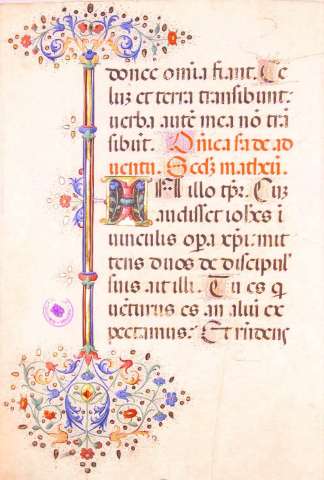 donec omia fiant. Ce
luz et terra transibunt.
uerba aute mea no trā
sibunt. Dnica sa de ad
uentu. Scdz matheu.
IN illo tpr. Cuz
audisset iohes i
uinculis opa xpi: mit
tens duos de discipul'
suis ait illi. Tu es q
uenturus es an aliu ex
pectamus. Et rndens